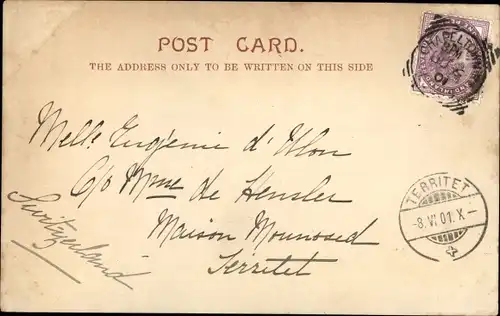 POST CARD.
THE ADDRESS ONLY TO BE WRITTEN ON THIS SIDE
CHAPELTOWN
01
Melle Eugénie d'Ulon
C/o Mme de Hensler
Maison Mounosed
Territet
Switzerland
TERRITET
-8.VI.01.X-